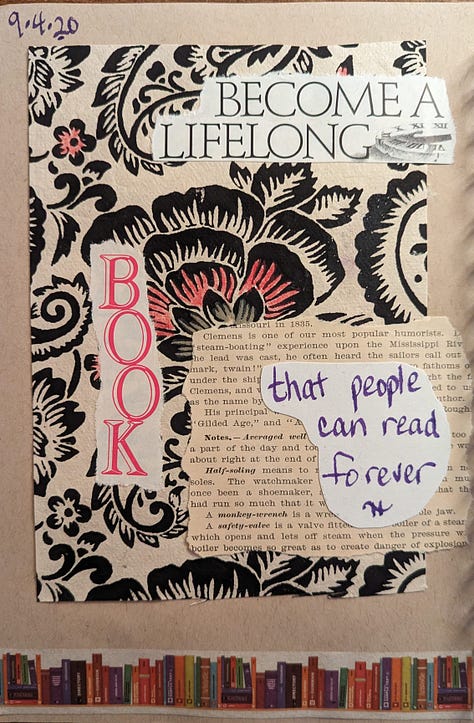 9.4.20
BECOME A
LIFELONG
BOOK
Missouri in 1835.
Clemens is one of our most popular humorists.
"steam-boating" experience upon the Mississippi Riv
he lead was cast, he often heard the sailors call out
mark, twain!
fathoms o
under the shi
Clemens, and
as the name by
His principal
'Gilded Age," and "A
Notes.—Averaged well
a part of the day and to
about right at the end of
Half-soling means to
soles. The watchmaker
once been a shoemaker,
had run so much that it
A monkey-wrench is a wre
le jaw.
A safety-valve is a valve fitte
boiler of a stea
which opens and lets off steam when the pressure w
boiler becomes so great as to create danger of explosion
that people
can read
forever